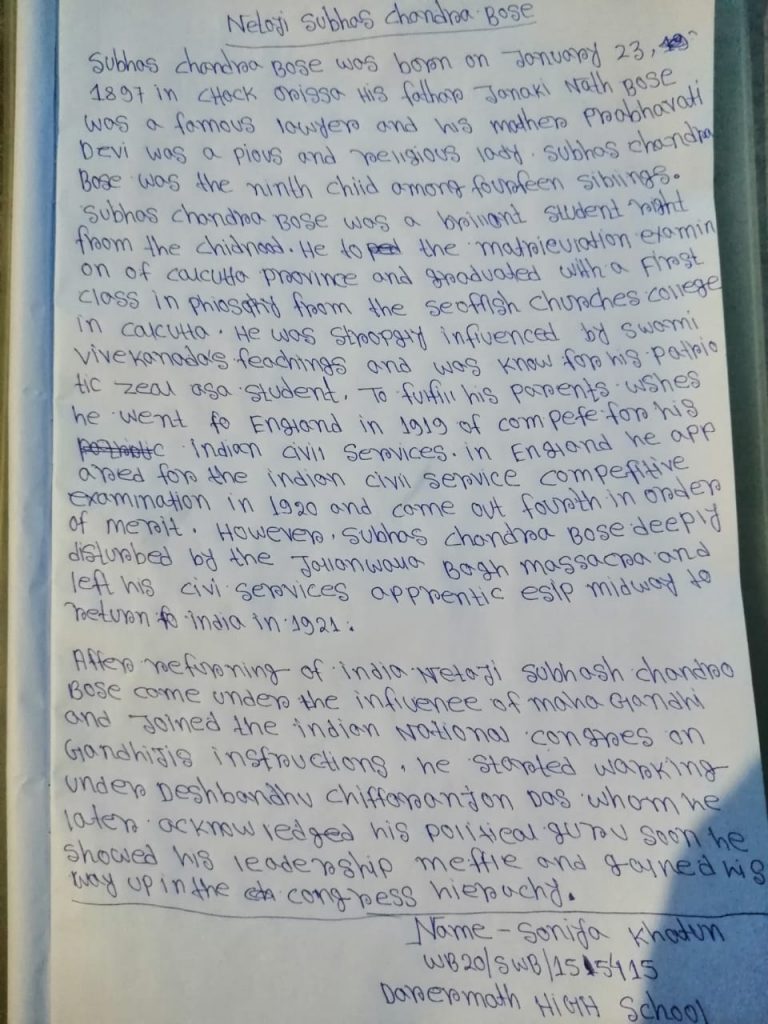 Netaji Subhas Chandra Bose
Subhas Chandra Bose was born on January 23,
1897 in CHack Orissa His father Janaki Nath Bose
was a famous lawyer and his mother Prabhavati
Devi was a pious and religious lady. Subhas Chandra
Bose was the ninth chiid among fourfeen sibiings.
Subhas Chandra Bose was a briliant student right
from the chidnood. He toped the matrieviation examin
on of calcutta province and graduated with a First
class in phiosophy from the seoffish churches college
in calcutta. He was stropgiy infivenced by swami
vivekanada's feachings and was know for his patrio
tic zeal asa student. To fulfill his parents wshes
he went fo England in 1919 of compefe for his
indian civii services. in England he app
ared for the indian civil service compefitive
examination in 1920 and came out fourth in order
of merit. However, Subhas Chandra Bose deeply
disturbed by the Jalianwaya Bagh massacra and
left his civi services apprentic eslp midway to
return fo india in 1921.
After refurning of india Netaji Subhash Chandra
Bose came under the infivenee of maha Gandhi
and Joined the indian National congres on
Gandhijis instructions, he started warking
under Deshbandhu Chiffaranjan Das whom he
later acknow ledged his political guru soon he
showed his leadership meffie and gained his
way up in the congress hierachy.
Name - Sonifa Khatun
WB20/SWB/155415
Darermath HIGH School